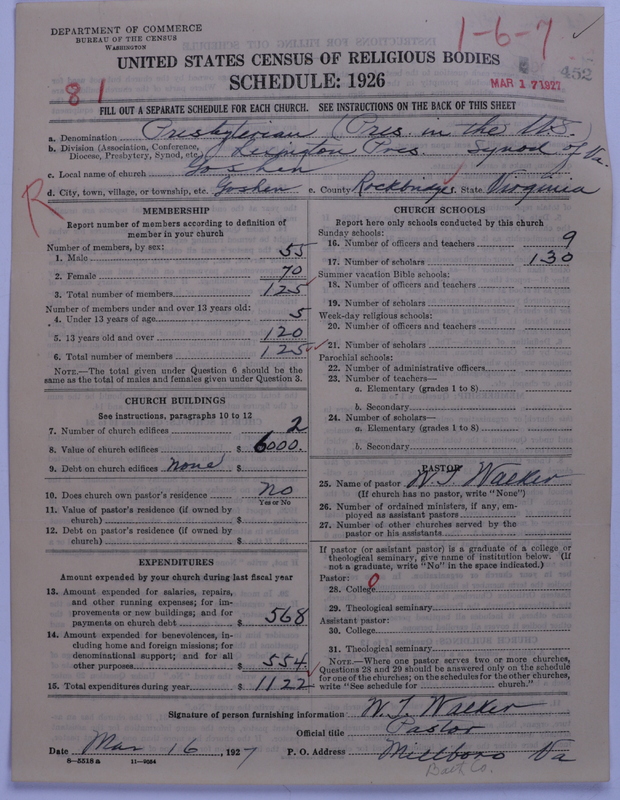 DEPARTMENT OF COMMERCE
BUREAU OF THE CENSUS
WASHINGTON
1-6-7
UNITED STATES CENSUS OF RELIGIOUS BODIES
SCHEDULE: 1926
452
MAR 17 1927
81
FILL OUT A SEPARATE SCHEDULE FOR EACH CHURCH. SEE INSTRUCTIONS ON THE BACK OF THIS SHEET
a. Denomination Presbyterian (Pres. in the U.S.)
b. Division (Association, Conference, Diocese, Presbytery, Synod, etc.) Lexington Pres. Synod of Va.
c. Local name of church Goshen
d. City, town, village, or township, etc. Goshen e. County Rockbridge f. State Virginia
R
MEMBERSHIP
Report number of members according to definition of
member in your church
Number of members, by sex:
1. Male 55
2. Female 70
3. Total number of members 125
Number of members under and over 13 years old:
4. Under 13 years of age 5
5. 13 years old and over 120
6. Total number of members 125
NOTE.—The total given under Question 6 should be
same as the total of males and females given under Question 3.
CHURCH BUILDINGS
See instructions, paragraphs 10 to 12
7. Number of church edifices 2
8. Value of church edifices $ 6000.
9. Debt on church edifices none $
10. Does church own pastor's residence No
Yes or No
11. Value of pastor's residence (if owned by
church) $
12. Debt on pastor's residence (if owned by
church) $
EXPENDITURES
Amount expended by your church during last fiscal year
13. Amount expended for salaries, repairs,
and other running expenses; for im-
provements or new buildings; and for
payments on church debt $ 568
14. Amount expended for benevolences, in-
cluding home and foreign missions; for
denominational support; and for all
other purposes $ 554.
15. Total expenditures during year $ 1122
CHURCH SCHOOLS
Report here only schools conducted by this church
Sunday schools:
16. Number of officers and teachers 9
17. Number of scholars 130
Summer vacation Bible schools:
18. Number of officers and teachers
19. Number of scholars
Week-day religious schools:
20. Number of officers and teachers
21. Number of scholars
Parochial schools:
22. Number of administrative officers
23. Number of teachers—
a. Elementary (grades 1 to 8)
b. Secondary
24. Number of scholars—
a. Elementary (grades 1 to 8)
b. Secondary
PASTOR
25. Name of pastor W. T. Walker
(If church has no pastor, write "None")
26. Number of ordained ministers, if any, em-
ployed as assistant pastors
27. Number of other churches served by the
pastor or his assistants
If pastor (or assistant pastor) is a graduate of a college or
theological seminary, give name of institution below. (If
not a graduate, write "No" in the space indicated.)
Pastor:
28. College 0
29. Theological seminary
Assistant pastor:
30. College
31. Theological seminary
NOTE.—Where one pastor serves two or more churches,
Questions 28 and 29 should be answered only on the schedule
for one of the churches; on the schedules for the other churches,
write "See schedule for church."
Signature of person furnishing information W. T. Walker
Official title Pastor
Date Mar 16, 1927 P. O. Address Millboro Va
8—5518a 11—9034
Bath Co.